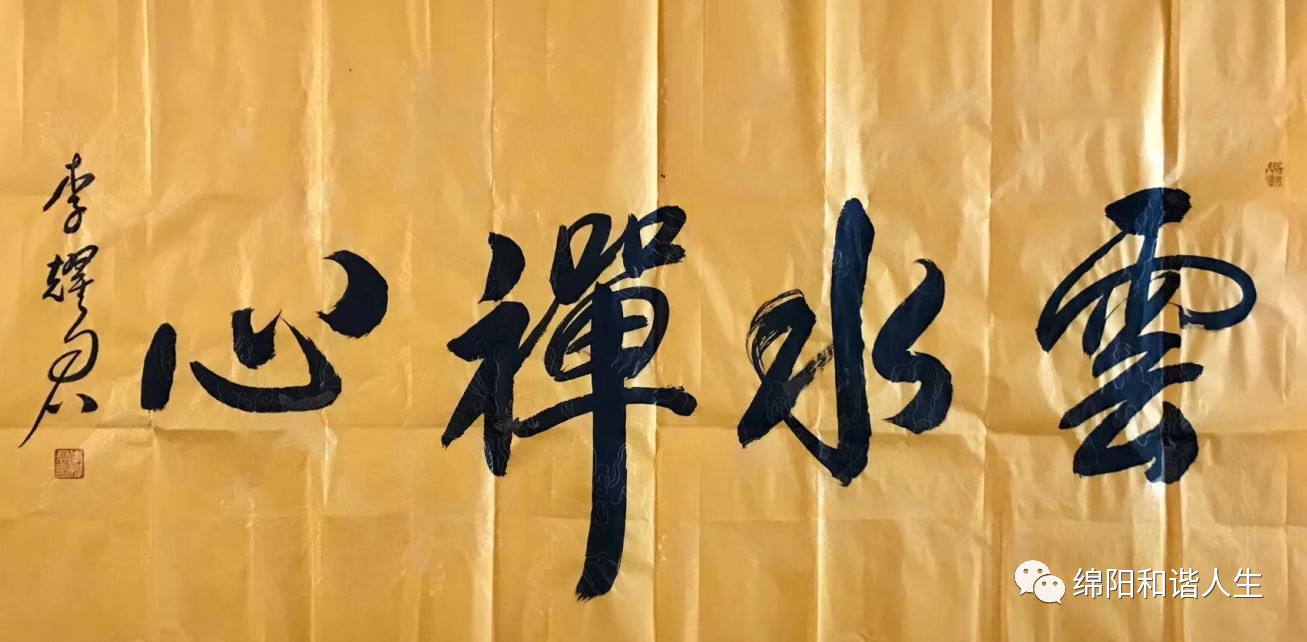 雲水禪心
李耀君
绵阳和谐人生